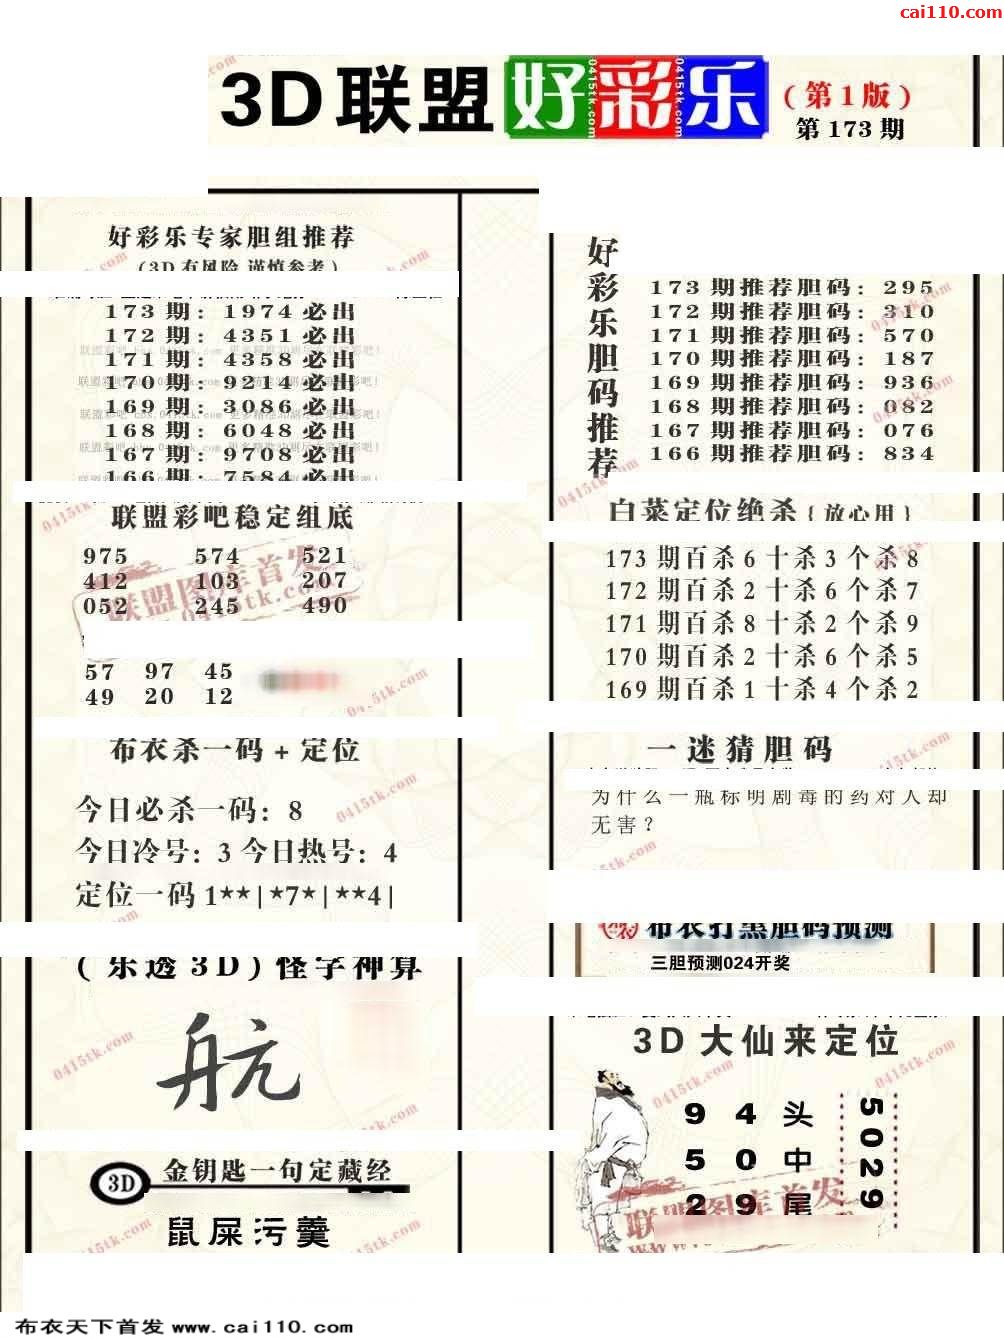 cai110.com
3D联盟好彩乐
(第1版)
第173期
好彩乐专家胆组推荐
(3D有风险 谨慎参考)
173期: 1974必出
172期: 4351必出
171期: 4358必出
170期: 9214必出
169期: 3086必出
168期: 6048必出
167期: 9708必出
166期: 7584必出
联盟彩吧稳定组底
975 574 521
412 103 207
052 245 490
57 97 45
49 20 12
布衣杀一码+定位
今日必杀一码: 8
今日冷号: 3 今日热号: 4
定位一码 1**|*7*|**4|
(乐透3D)怪字神算
航
3D 金钥匙一句定藏经
鼠屎污羹
好彩乐胆码推荐
173期推荐胆码: 295
172期推荐胆码: 310
171期推荐胆码: 570
170期推荐胆码: 187
169期推荐胆码: 936
168期推荐胆码: 082
167期推荐胆码: 076
166期推荐胆码: 834
白菜定位绝杀{放心用}
173期百杀6十杀3个杀8
172期百杀2十杀6个杀7
171期百杀8十杀2个杀9
170期百杀2十杀6个杀5
169期百杀1十杀4个杀2
一迷猜胆码
为什么一瓶标明剧毒的药对人却
无害?
布衣打黑胆码预测
三胆预测024开奖
3D大仙来定位
9 4 头
5 0 中
2 9 尾
5029
联盟图库首发
0415tk.com
布衣天下首发 www.cai110.com